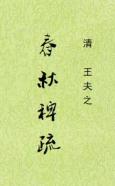 清 王夫之
春秋稗疏